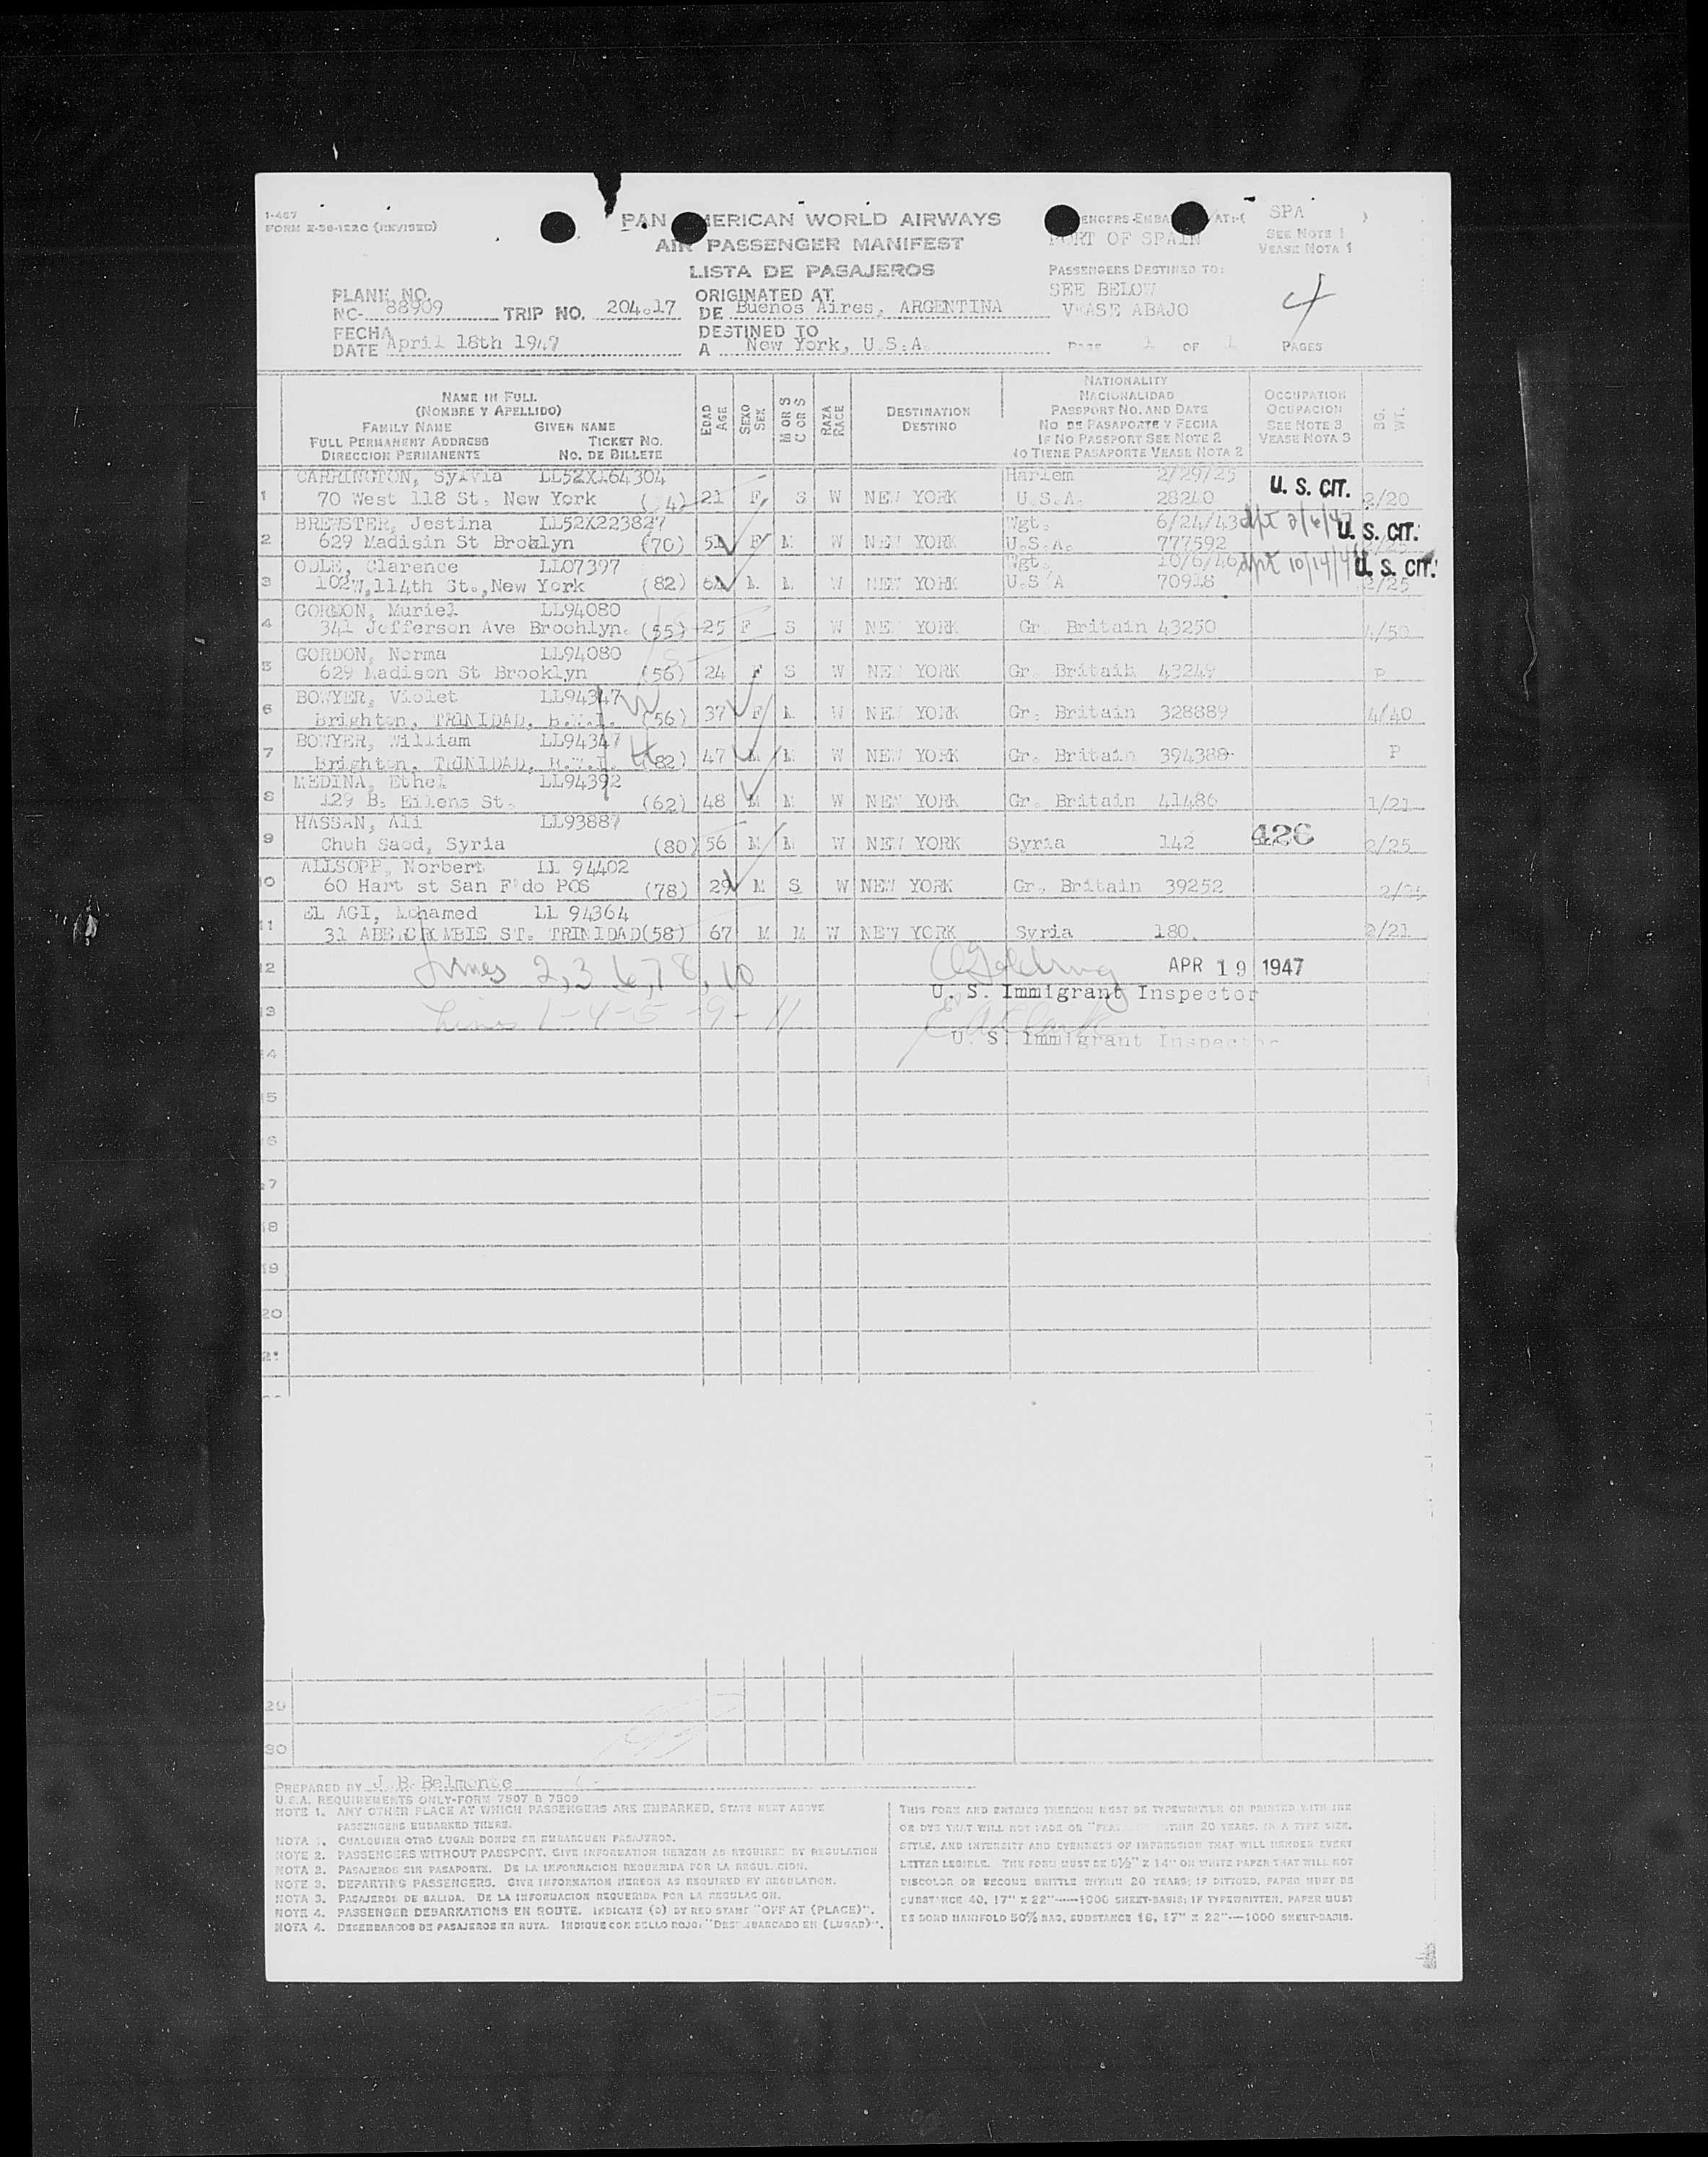 1-467
FORM E-36-122C (REVISED)
PAN AMERICAN WORLD AIRWAYS
AIR PASSENGER MANIFEST
LISTA DE PASAJEROS
SPA
SEE NOTE 1
VEASE NOTA 1
PORT OF SPAIN
PASSENGERS DESTINED TO:
SEE BELOW
VEASE ABAJO
4
PLANE NO.
NC- 88909 TRIP NO. 204.17
ORIGINATED AT
DE Buenos Aires, ARGENTINA
FECHA
DATE April 18th 1947
DESTINED TO
A New York, U.S.A.
PAGE 1 OF 1 PAGES
NAME IN FULL
(NOMBRE Y APELLIDO)
FAMILY NAME GIVEN NAME
FULL PERMANENT ADDRESS TICKET NO.
DIRECCION PERMANENTE NO. DE BILLETE
EDAD
AGE
SEXO
SEX
M OR S
C OR S
RAZA
RACE
DESTINATION
DESTINO
NATIONALITY
NACIONALIDAD
PASSPORT NO. AND DATE
NO DE PASAPORTE Y FECHA
IF NO PASSPORT SEE NOTE 2
NO TIENE PASAPORTE VEASE NOTA 2
OCCUPATION
OCUPACION
SEE NOTE 3
VEASE NOTA 3
BG.
WT.
CARRINGTON, Sylvia LL52X164304 Harlem 2/29/25
1 70 West 118 St, New York 21 F S W NEW YORK U.S.A. 28240 U. S. CIT. 2/20
BREWSTER, Jestina LL52X223827 Wgt. 6/24/43
2 629 Madisin St Brooklyn (70) 51 F M W NEW YORK U.S.A. 777592 U. S. CIT.
ODLE, Clarence LL07397 Wgt. 10/6/46
3 102W,114th St.,New York (82) 64 M M W NEW YORK U.S A 70918 U. S. CIT. 2/25
GORDON, Muriel LL94080
4 341 Jefferson Ave Broohlyn. (55) 25 F S W NEW YORK Gr. Britain 43250 4/50
GORDON, Norma LL94080
5 629 Madison St Brooklyn (56) 24 F S W NEW YORK Gr. Britain 43249 P
BOWYER, Violet LL94347
6 Brighton, TRINIDAD, B.W.I. (56) 37 F M W NEW YORK Gr. Britain 328889 4/40
BOWYER, William LL94347
7 Brighton, TRINIDAD, B.W.I. (82) 47 M M W NEW YORK Gr. Britain 394388 P
MEDINA, Ethel LL94392
8 129 B. Eilens St. (62) 48 M M W NEW YORK Gr. Britain 41486 1/21
HASSAN, Ali LL93887
9 Chuh Saod, Syria (80) 56 M M W NEW YORK Syria 142 426 2/25
ALLSOPP, Norbert LL 94402
10 60 Hart st San F'do POS (78) 29 M S W NEW YORK Gr. Britain 39252 2/25
EL AGI, Mohamed LL 94364
11 31 ABERCROMBIE ST. TRINIDAD(58) 67 M M W NEW YORK Syria 180 2/21
12 Lines 2,3 6,7 8, 10 APR 19 1947
U. S. Immigrant Inspector
13 Lines 1-4-5-9-11
U. S. Immigrant Inspector
14
15
16
17
18
19
20
21
29
30
PREPARED BY J. B. Belmonte
U.S.A. REQUIREMENTS ONLY-FORM 7507 & 7509
NOTE 1. ANY OTHER PLACE AT WHICH PASSENGERS ARE EMBARKED, STATE NEXT ABOVE
PASSENGERS EMBARKED THERE.
NOTA 1. CUALQUIER OTRO LUGAR DONDE SE EMBARQUEN PASAJEROS.
NOTE 2. PASSENGERS WITHOUT PASSPORT. GIVE INFORMATION HEREON AS REQUIRED BY REGULATION
NOTA 2. PASAJEROS SIN PASAPORTE. DE LA INFORMACION REQUERIDA POR LA REGULACION.
NOTE 3. DEPARTING PASSENGERS. GIVE INFORMATION HEREON AS REQUIRED BY REGULATION.
NOTA 3. PASAJEROS DE SALIDA. DE LA INFORMACION REQUERIDA POR LA REGULACION.
NOTE 4. PASSENGER DEBARKATIONS EN ROUTE. INDICATE (D) BY RED STAMP "OFF AT (PLACE)".
NOTA 4. DESEMBARCOS DE PASAJEROS EN RUTA. INDIQUE CON SELLO ROJO: "DESEMBARCADO EN (LUGAR)".
THIS FORM AND ENTRIES THEREON MUST BE TYPEWRITTEN OR PRINTED WITH INK
OR DYE THAT WILL NOT FADE OR WITHIN 20 YEARS, IN A TYPE SIZE,
STYLE, AND INTENSITY AND EVENNESS OF IMPRESSION THAT WILL RENDER EVERY
LETTER LEGIBLE. THE FORM MUST BE 8½" X 14" ON WHITE PAPER THAT WILL NOT
DISCOLOR OR BECOME BRITTLE WITHIN 20 YEARS; IF DITTOED, PAPER MUST BE
SUBSTANCE 40, 17" X 22"——1000 SHEET-BASIS; IF TYPEWRITTEN, PAPER MUST
BE BOND MANIFOLD 50% RAG, SUBSTANCE 16, 17" X 22"—1000 SHEET-BASIS.